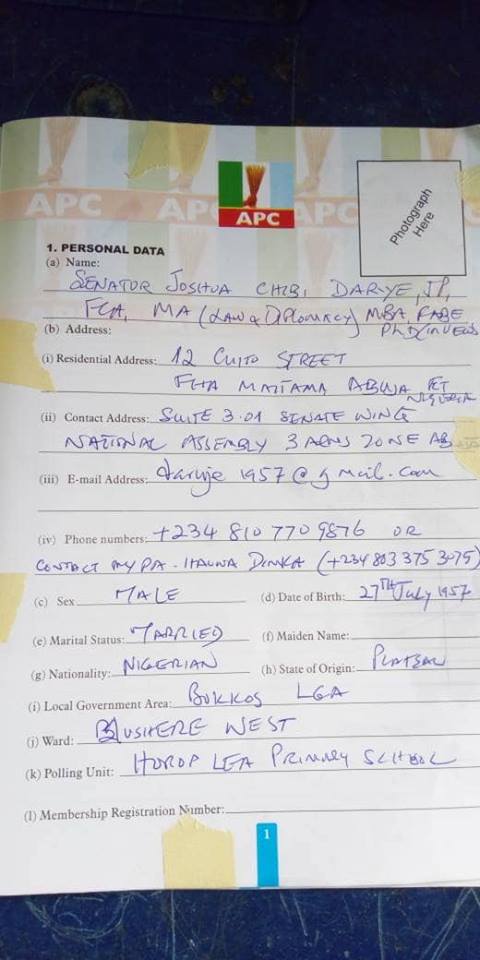 APC APC APC APC
APC
Photograph Here
1. PERSONAL DATA
(a) Name:
SENATOR JOSHUA CHIBI DARIYE, JP,
FCA, MA (LAW & DIPLOMACY) MBA, FABE
PhD (IN VIEW)
(b) Address:
(i) Residential Address: 12 CUITO STREET
FHA MAITAMA ABUJA FCT
NIGERIA
(ii) Contact Address: SUITE 3.01 SENATE WING
NATIONAL ASSEMBLY 3 ARMS ZONE AB
(iii) E-mail Address: dariye1957@gmail.com
(iv) Phone numbers: +234 810 770 9876 OR
CONTACT MY PA - HAUWA DIMKA (+234 803 375 3075)
(c) Sex MALE (d) Date of Birth: 27TH July 1957
(e) Marital Status: MARRIED (f) Maiden Name:
(g) Nationality: NIGERIAN (h) State of Origin: PLATEAU
(i) Local Government Area: BOKKOS LGA
(j) Ward: BUSHERE WEST
(k) Polling Unit: HOROP LEA PRIMARY SCHOOL
(l) Membership Registration Number:
1